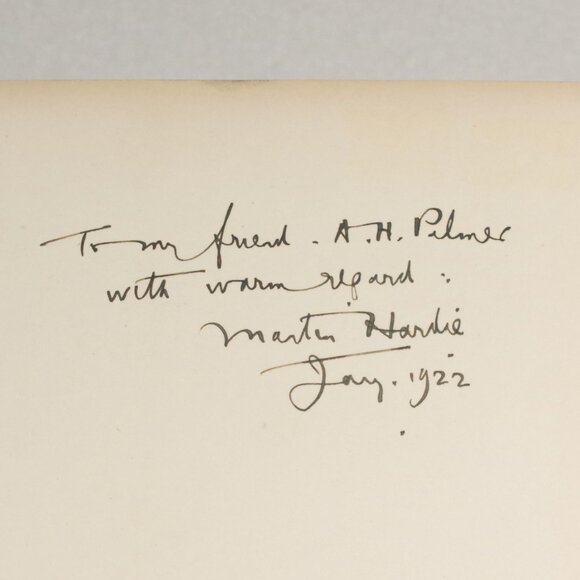 To my friend. A.H. Pilmer
with warm regard:
Martin Hardie
Jany. 1922